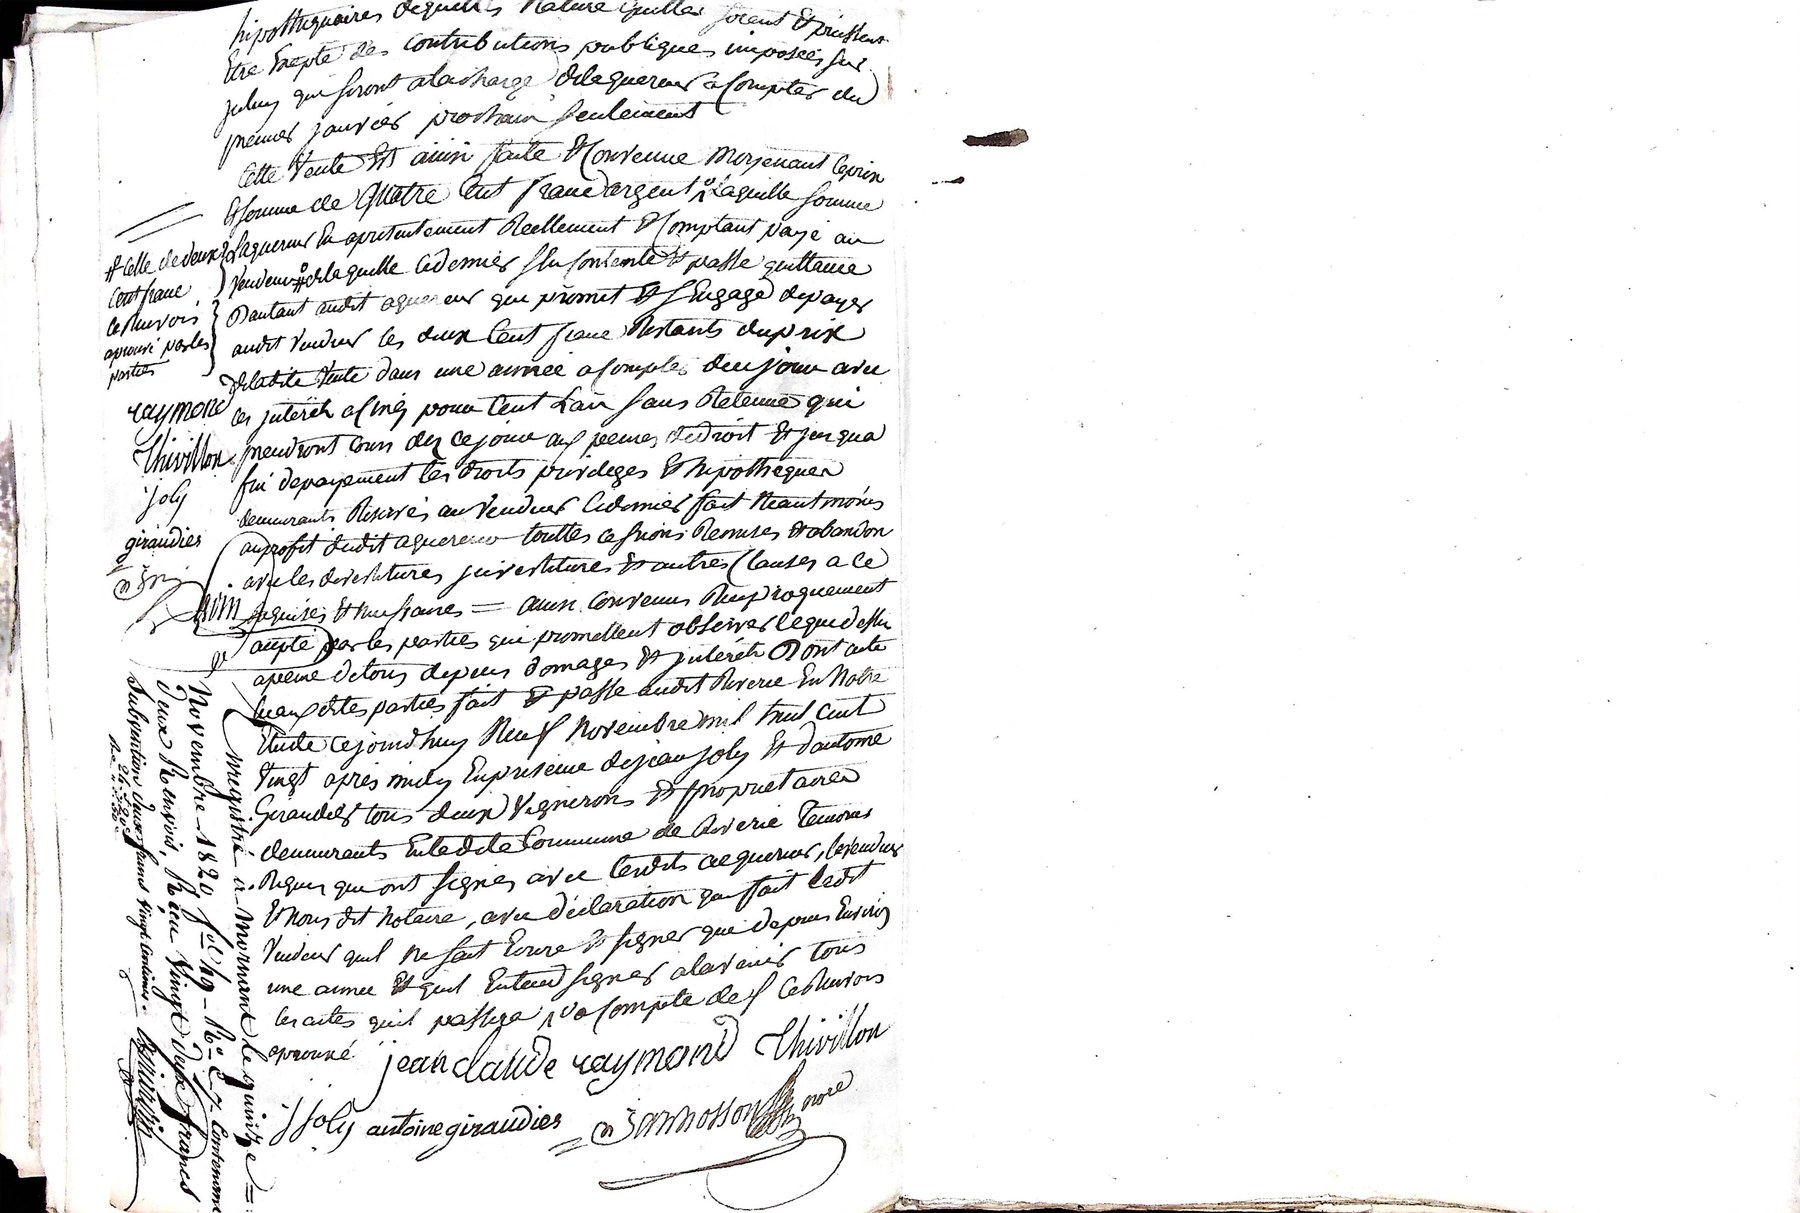 hipothequaires dequelles Nature quelles soient & puissent
Etre Excepté des Contributions publiques imposées sur
qui seront a la charge de laquereur a Compter du
premier janvier prochain seulement
Cette Vente Est ainsi faite & Convenue Moyenant le prix
& somme de Quatre Cent franc argent laquelle somme
laquereur En a presentement Reellement & Comptant payé au
Vendeur # de laquelle Cedernier sen Contente & passe quittance
Dautant audit aquereur qui promet & sEngage depayer
audit Vendeur les deux Cent franc Restants duprix
deladite Vente dans une année a Compter dece jour avec
les jnterêts a Cinq pour Cent Lan sans Retenue qui
prendront cours des ce jour aux peines dedroit & jusqua
fin depayement les droits privileges & hipotheques
demeurants Reservés au Vendeur Cedernier fait Neantmoins
auprofit dudit aquereur touttes cessions Remises & abandon
avec les devestitures jnvestitures & autres Clauses a ce
Requises & necessaires = ainsi Convenus Reciproquement
accepté par les parties qui promettent observer lequedessu
apeine detous depens domages & jnterêts Dont acte
auxdites parties fait & passé audit Riverie En Notre
Etude cejourdhuy Neuf Novembre mil huit cent
Vingt après midy En presence dejean joly & dantoine
Giraudier tous deux Vignerons & proprietaires
demeurants En ladite Commune de Riverie Temoins
Requis qui ont signés avec lesdits aequereur, le vendeur
& Nous dit Notaire, avec déclaration que fait ledit
Vendeur quil ne sait Ecrire & signer que depuis Environ
une année & quil Entend signer a lavenir tous
les actes quil passera a Compte de Ce Renvois
aprouvé
jean claude raymond Thivillon
j joly antoine giraudier Jannosson nore
# Celle de deux
Cent franc
ce Renvois
aprouvé par les
parties
raymond
Thivillon
joly
giraudier
Enregistré à Mornant le quinze
Novembre 1820 fol 49 Ro C 7 Contenant
Deux Renvois, Reçu Vingt deux francs
Subvention deux francs vingt Centimes